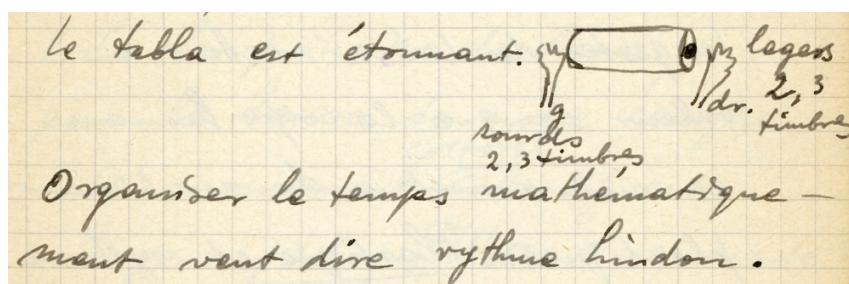 Le tabla est étonnant.
légers
2, 3
timbres
dr.
g
sourds
2, 3 timbres
Organiser le temps mathématique-
ment veut dire rythme hindou.